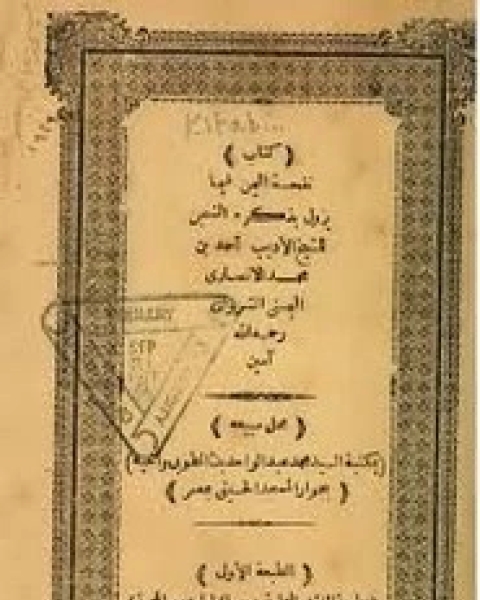 Kitabin
( كتاب )
نفحة اليمن فيما
يزول بذكره الشجن
للشيخ الأديب أحمد بن
محمد الانصارى
اليمنى الشروانى
رحمه الله
آمين
( محل مبيعه )
(بمكتبة السيد محمد عبد الواحد بك الطوبى وأخيه)
( بجوار المسجد الحسينى بمصر )
( الطبعة الأولى )